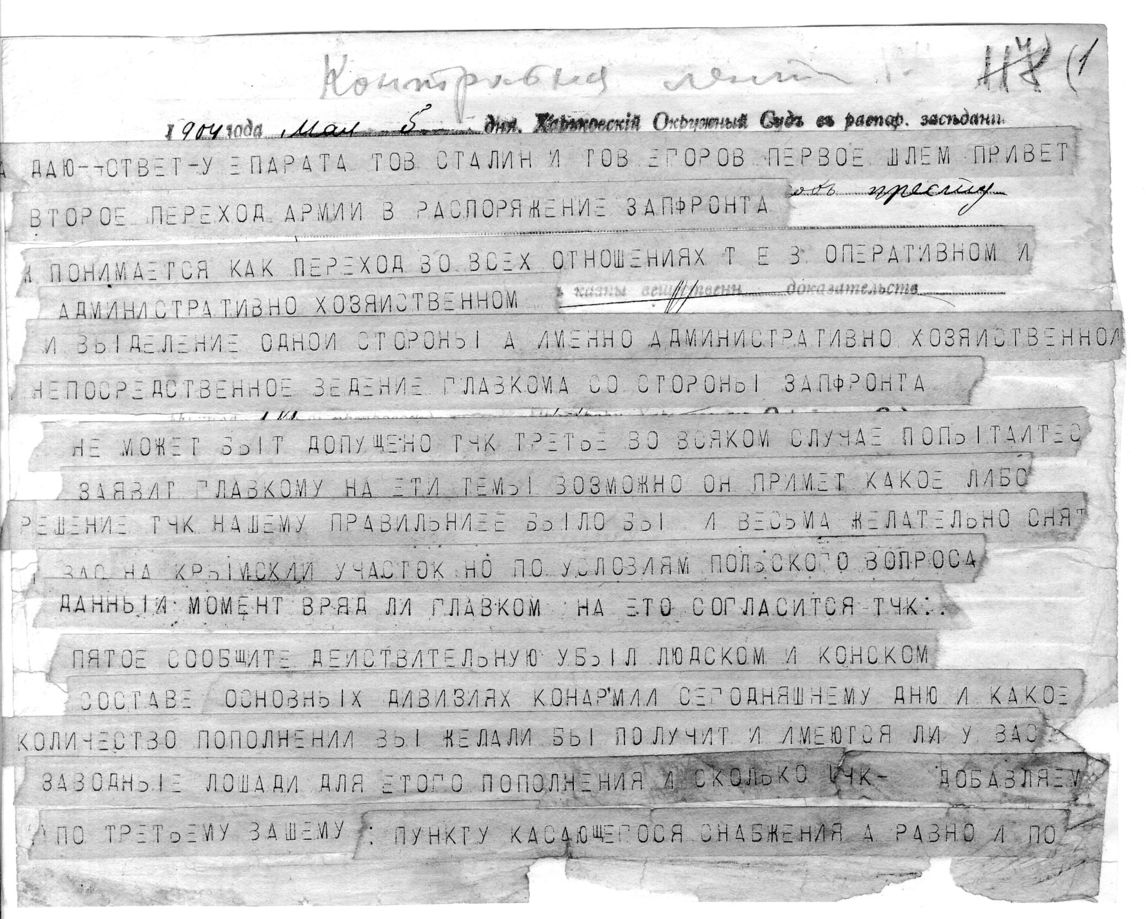 Контрольная лента
118 (1
1904 года мая 5 дня. Харьковскій Окружный Судъ въ распор. засѣдани
ДАЮ--ОТВЕТ-У ЕПАРАТА ТОВ СТАЛИН И ТОВ ЕГОРОВ ПЕРВОЕ ШЛЕМ ПРИВЕТ
объ
ВТОРОЕ ПЕРЕХОД АРМИИ В РАСПОРЯЖЕНИЕ ЗАПФРОНТА
ПОНИМАЕТСЯ КАК ПЕРЕХОД ВО ВСЕХ ОТНОШЕНИЯХ Т Е В ОПЕРАТИВНОМ И
казны веществени доказательств
АДМИНИСТРАТИВНО ХОЗЯИСТВЕННОМ
И ВЫДЕЛЕНИЕ ОДНОИ СТОРОНЫ А ИМЕННО АДМИНИСТРАТИВНО ХОЗЯИСТВЕННОИ
НЕПОСРЕДСТВЕННОЕ ВЕДЕНИЕ ГЛАВКОМА СО СТОРОНЫ ЗАПФРОНТА
НЕ МОЖЕТ БЫТ ДОПУЩЕНО ТЧК ТРЕТЬЕ ВО ВСЯКОМ СЛУЧАЕ ПОПЫТАИТЕС
ЗАЯВИТ ГЛАВКОМУ НА ЕТИ ТЕМЫ ВОЗМОЖНО ОН ПРИМЕТ КАКОЕ ЛИБО
РЕШЕНИЕ ТЧК НАШЕМУ ПРАВИЛЬНИЕЕ БЫЛО БЫ И ВЕСЬМА ЖЕЛАТЕЛЬНО СНЯТ
ВАС НА КРЫМСКИИ УЧАСТОК НО ПО УСЛОВИЯМ ПОЛЬСКОГО ВОПРОСА
ДАННЫИ МОМЕНТ ВРЯД ЛИ ГЛАВКОМ НА ЕТО СОГЛАСИТСЯ ТЧК:..
ПЯТОЕ СООБЩИТЕ ДЕИСТВИТЕЛЬНУЮ УБЫЛ ЛЮДСКОМ И КОНСКОМ
СОСТАВЕ ОСНОВНЫХ ДИВИЗИЯХ КОНАРМИИ СЕГОДНЯШНЕМУ ДНЮ И КАКОЕ
КОЛИЧЕСТВО ПОПОЛНЕНИИ ВЫ ЖЕЛАЛИ БЫ ПОЛУЧИТ И ИМЕЮТСЯ ЛИ У ВАС
ЗАВОДНЫЕ ЛОШАДИ ДЛЯ ЕТОГО ПОПОЛНЕНИЯ И СКОЛЬКО ТЧК- ДОБАВЛЯЕМ
ПО ТРЕТЬЕМУ ВАШЕМУ : ПУНКТУ КАСАЮЩЕГОСЯ СНАБЖЕНИЯ А РАВНО И ПО